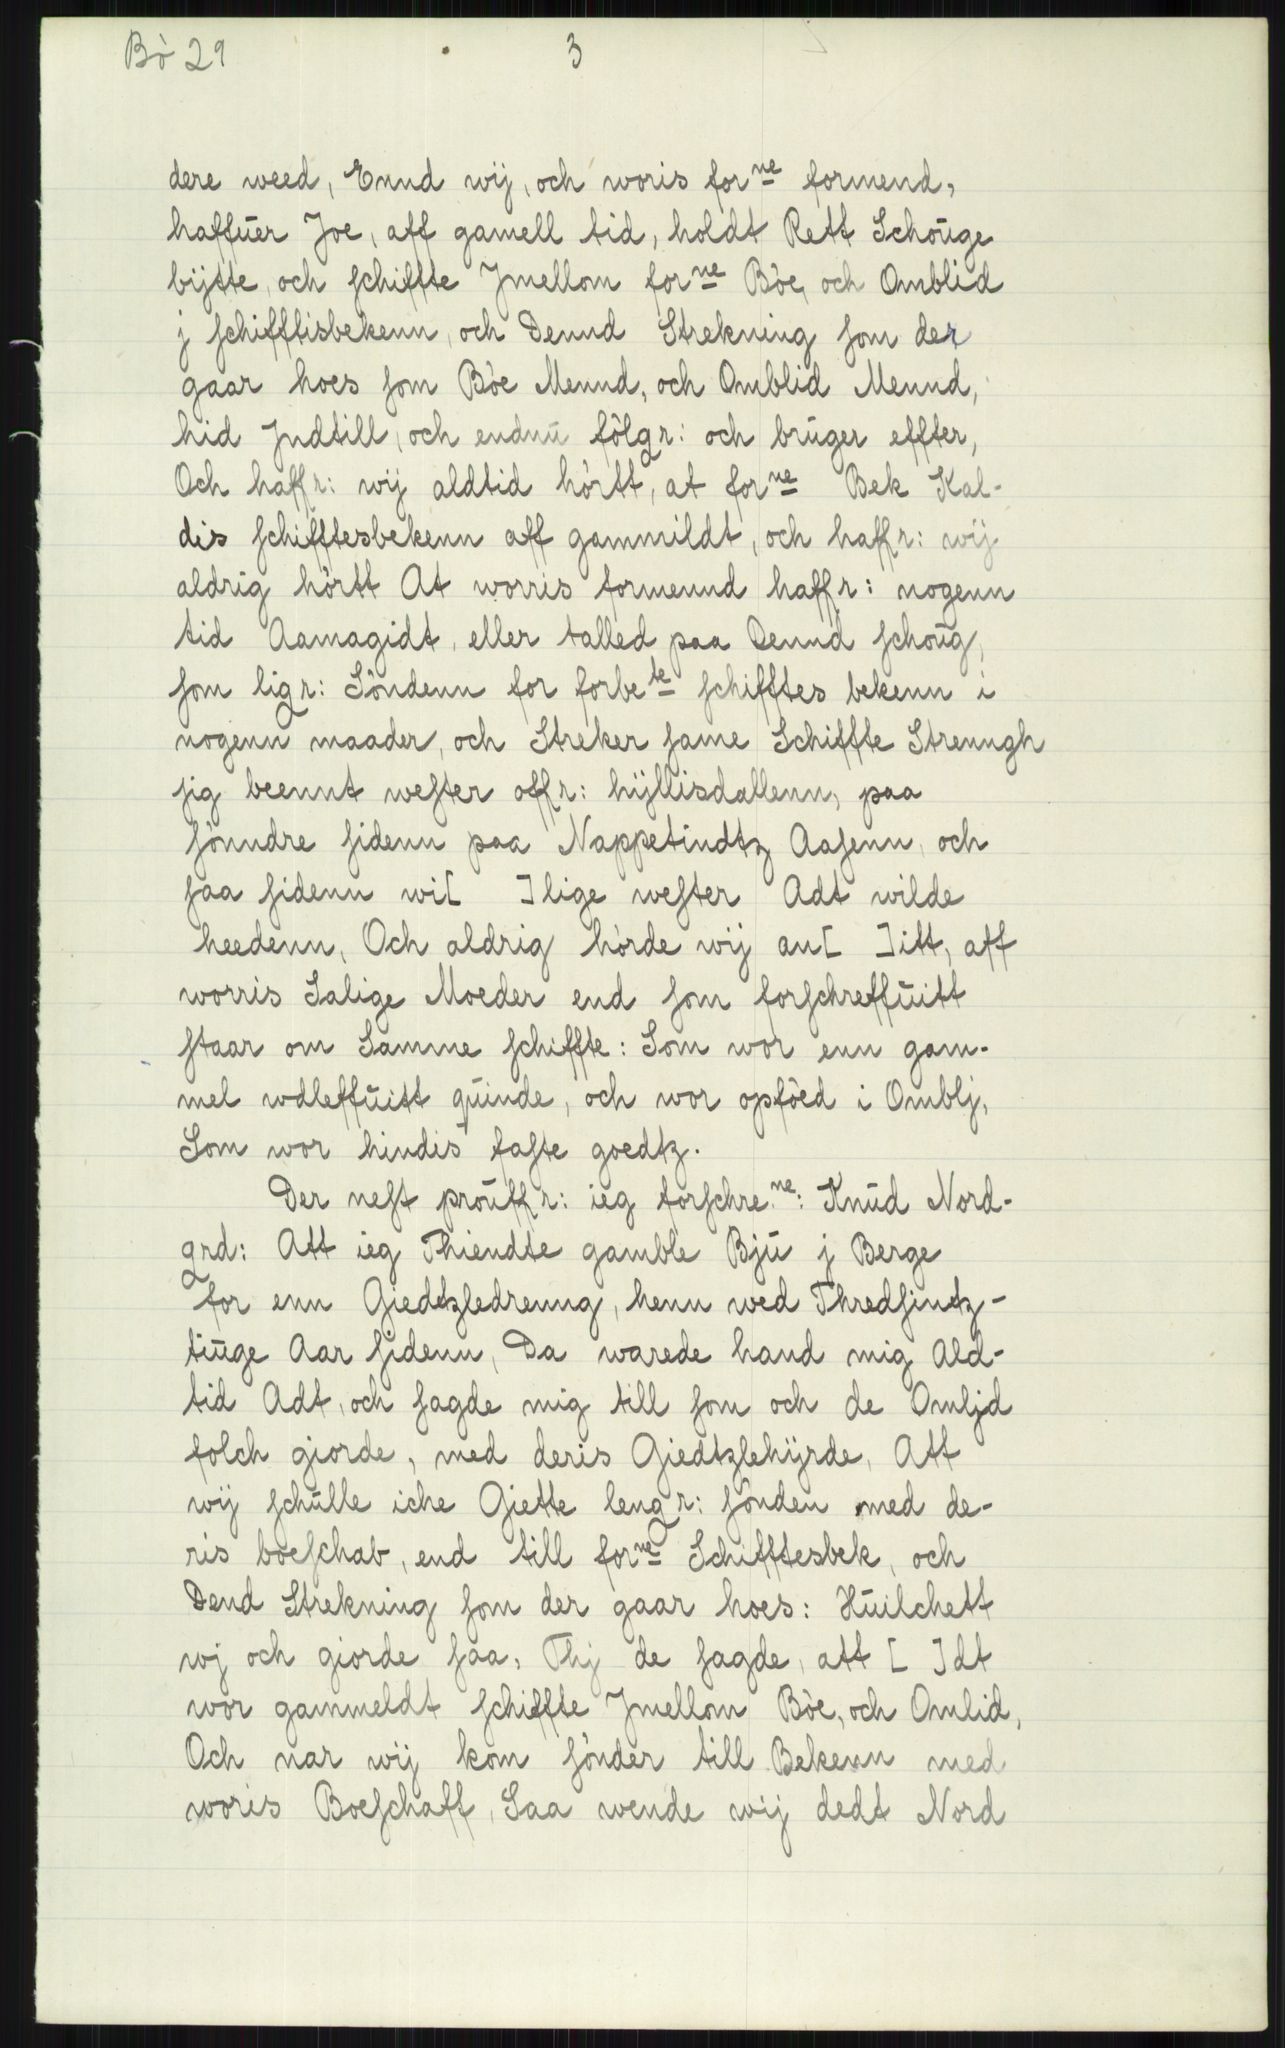 Bö 29
3
dere weed, Ennd wij, och woris forne formend,
haffuer Joe, aff gamell tid, holdt Rett Schouge
bijtte, och schiffte Jmellom forne Böe, och Omblid
j schifftisbekenn, och Dennd Strekning som der
gaar hoes som Böe Mennd, och Omblid Mennd,
hid Jndtill, och endnu fölgr: och bruger effter,
Och haffr: wij aldtid hörtt, at forne Bek Kal-
dis schifftesbekenn aff gammildt, och haffr: wij
aldrig hörtt At worris formennd haffr: nogenn
tid Aamagidt, eller talled paa Dennd schoug,
som ligr: Söndenn for forbete schifftes bekenn i
nogenn maader, och Streker same Schiffte Strenngh
sig beennt wester offr: hijllisdallenn, paa
sönndre sidenn paa Nappetindtz Aasenn, och
saa sidenn wi[ ]lige wester Adt wilde
heedenn, Och aldrig hörde wij an[ ]itt, aff
worris Salige Moeder end som forschreffuitt
staar om Samme schiffte: Som wor enn gam-
mel wdleffuitt quinde, och wor opföed i Omblj,
Som wor hindis faste goedtz.
Der nest prouffr: ieg forschrene: Knud Nord-
grd: Att ieg Thiendte gamble Bju j Berge
for enn Giedtzledrenng, henn wed Thredsindtz-
tiuge Aar sidenn, Da warede hand mig Ald-
tid Adt, och sagde mig till som och de Omljd
folch giorde, med deris Giedtzlehijrde, Att
wij schulle iche Giette lengr: sönden med de-
ris boeschab, end till forne Schifftesbek, och
Dend Strekning som der gaar hoes: Huilchett
wj och giorde saa, Thj de sagde, att [ ]dt
wor gammeldt schiffte Jmellom Böe, och Omlid,
Och nar wij kom sönder till Bekenn med
woris Boeschaff, Saa wende wij dedt Nord